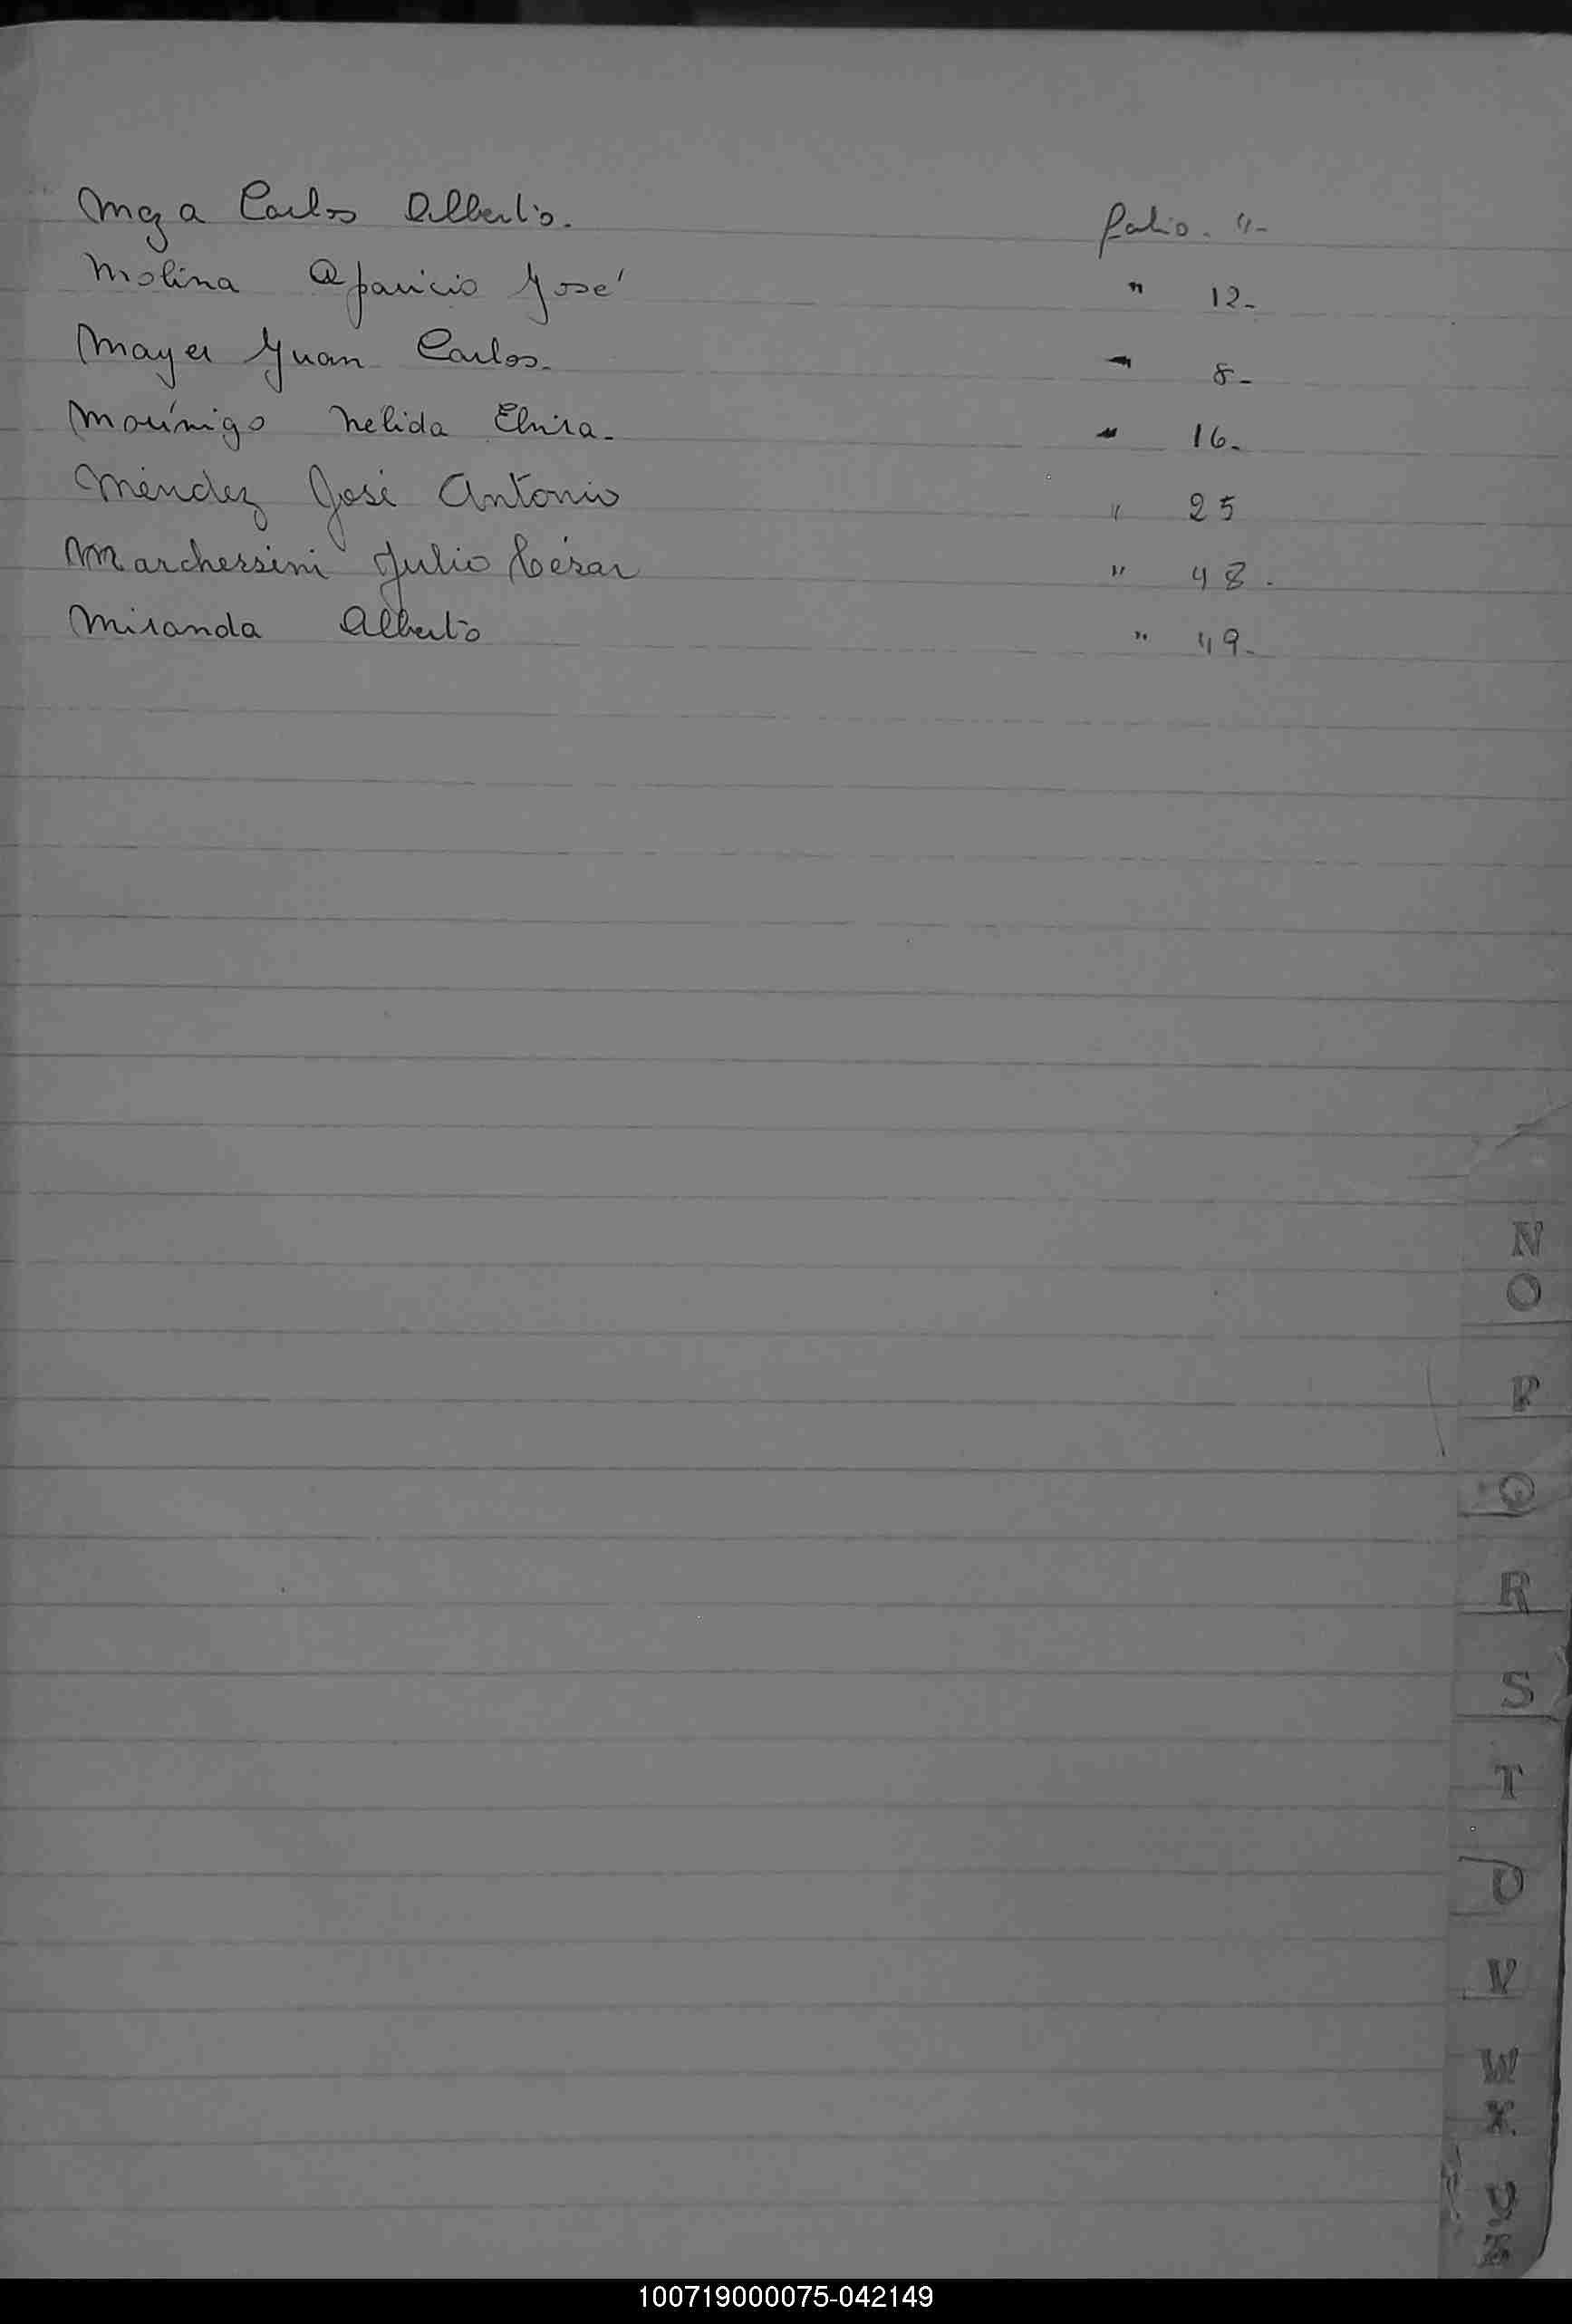 Meza Carlos Alberto. folio. 4-
Molina Aparicio José " 12-
Mayer Juan Carlos. " 8-
Morínigo Nélida Elvira. " 16-
Méndez José Antonio " 25
Marchessini Julio César " 48.
Miranda Alberto " 49-
N
O
P
Q
R
S
T
U
V
W
X
Y
Z
100719000075-042149